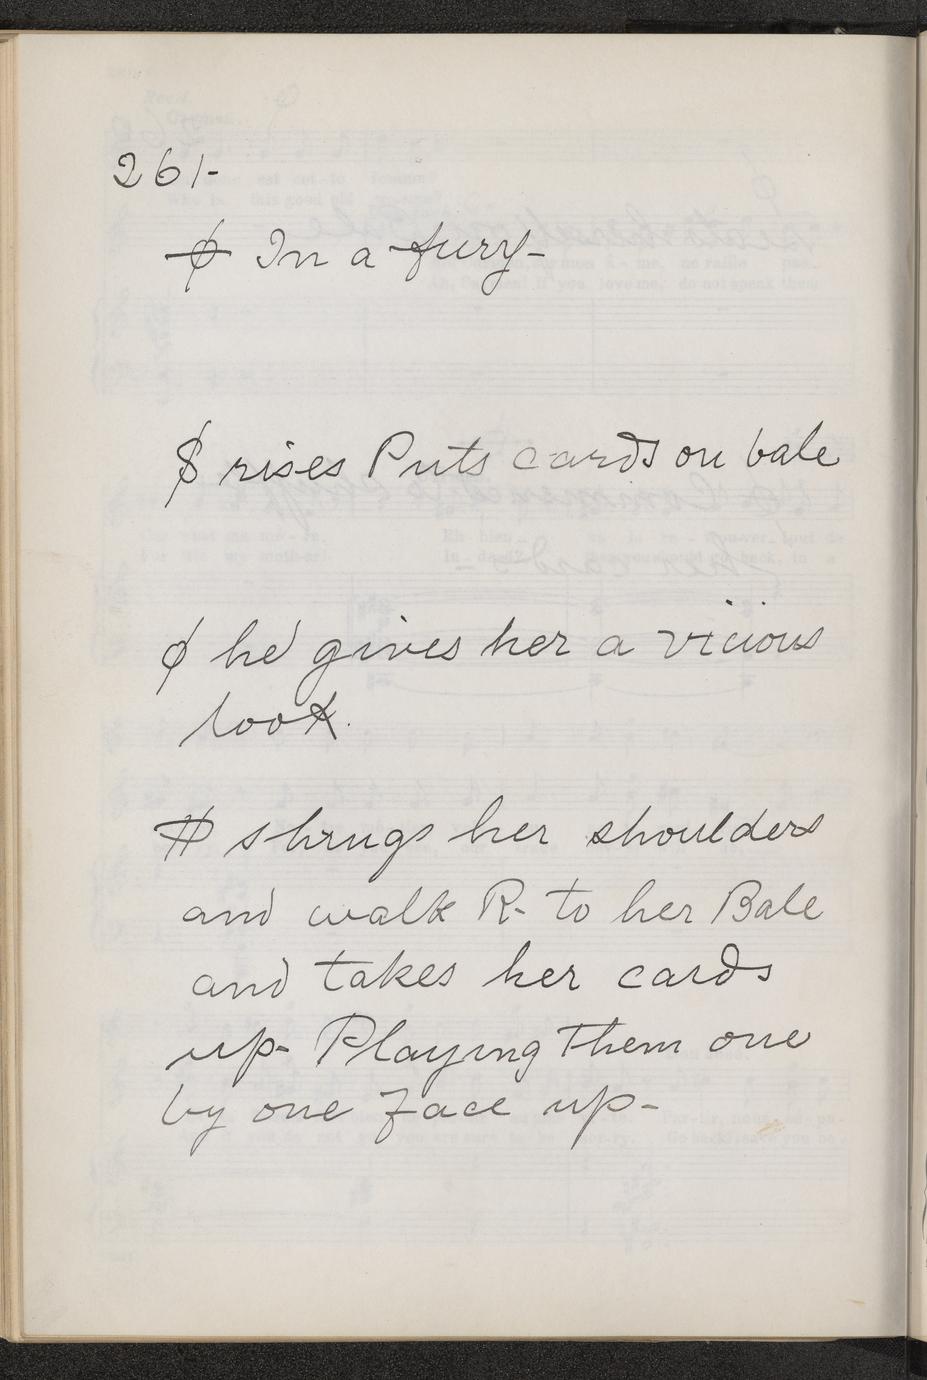 261-
ϕ In a fury-
$ rises Puts cards on bale
ϕ he gives her a vicious
look.
# shrugs her shoulders
and walk R- to her Bale
and takes her cards
up- Playing them one
by one face up-